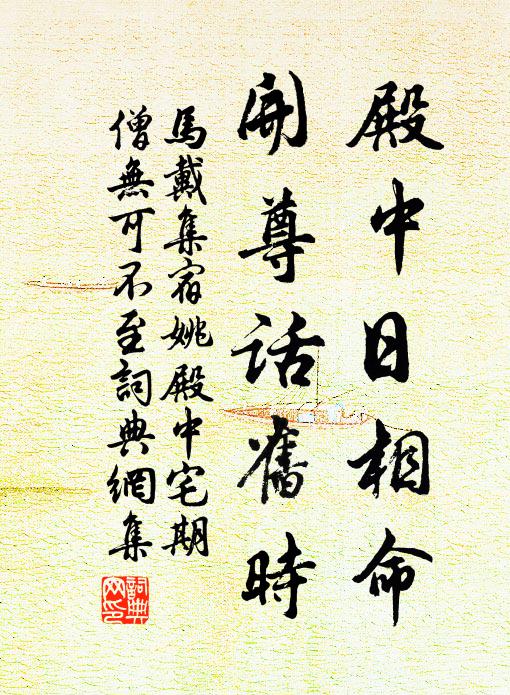 殿中日相命
開尊話舊時
馬戴集宿姚殿中宅期
僧無可不至詞典網集
詞典
网印